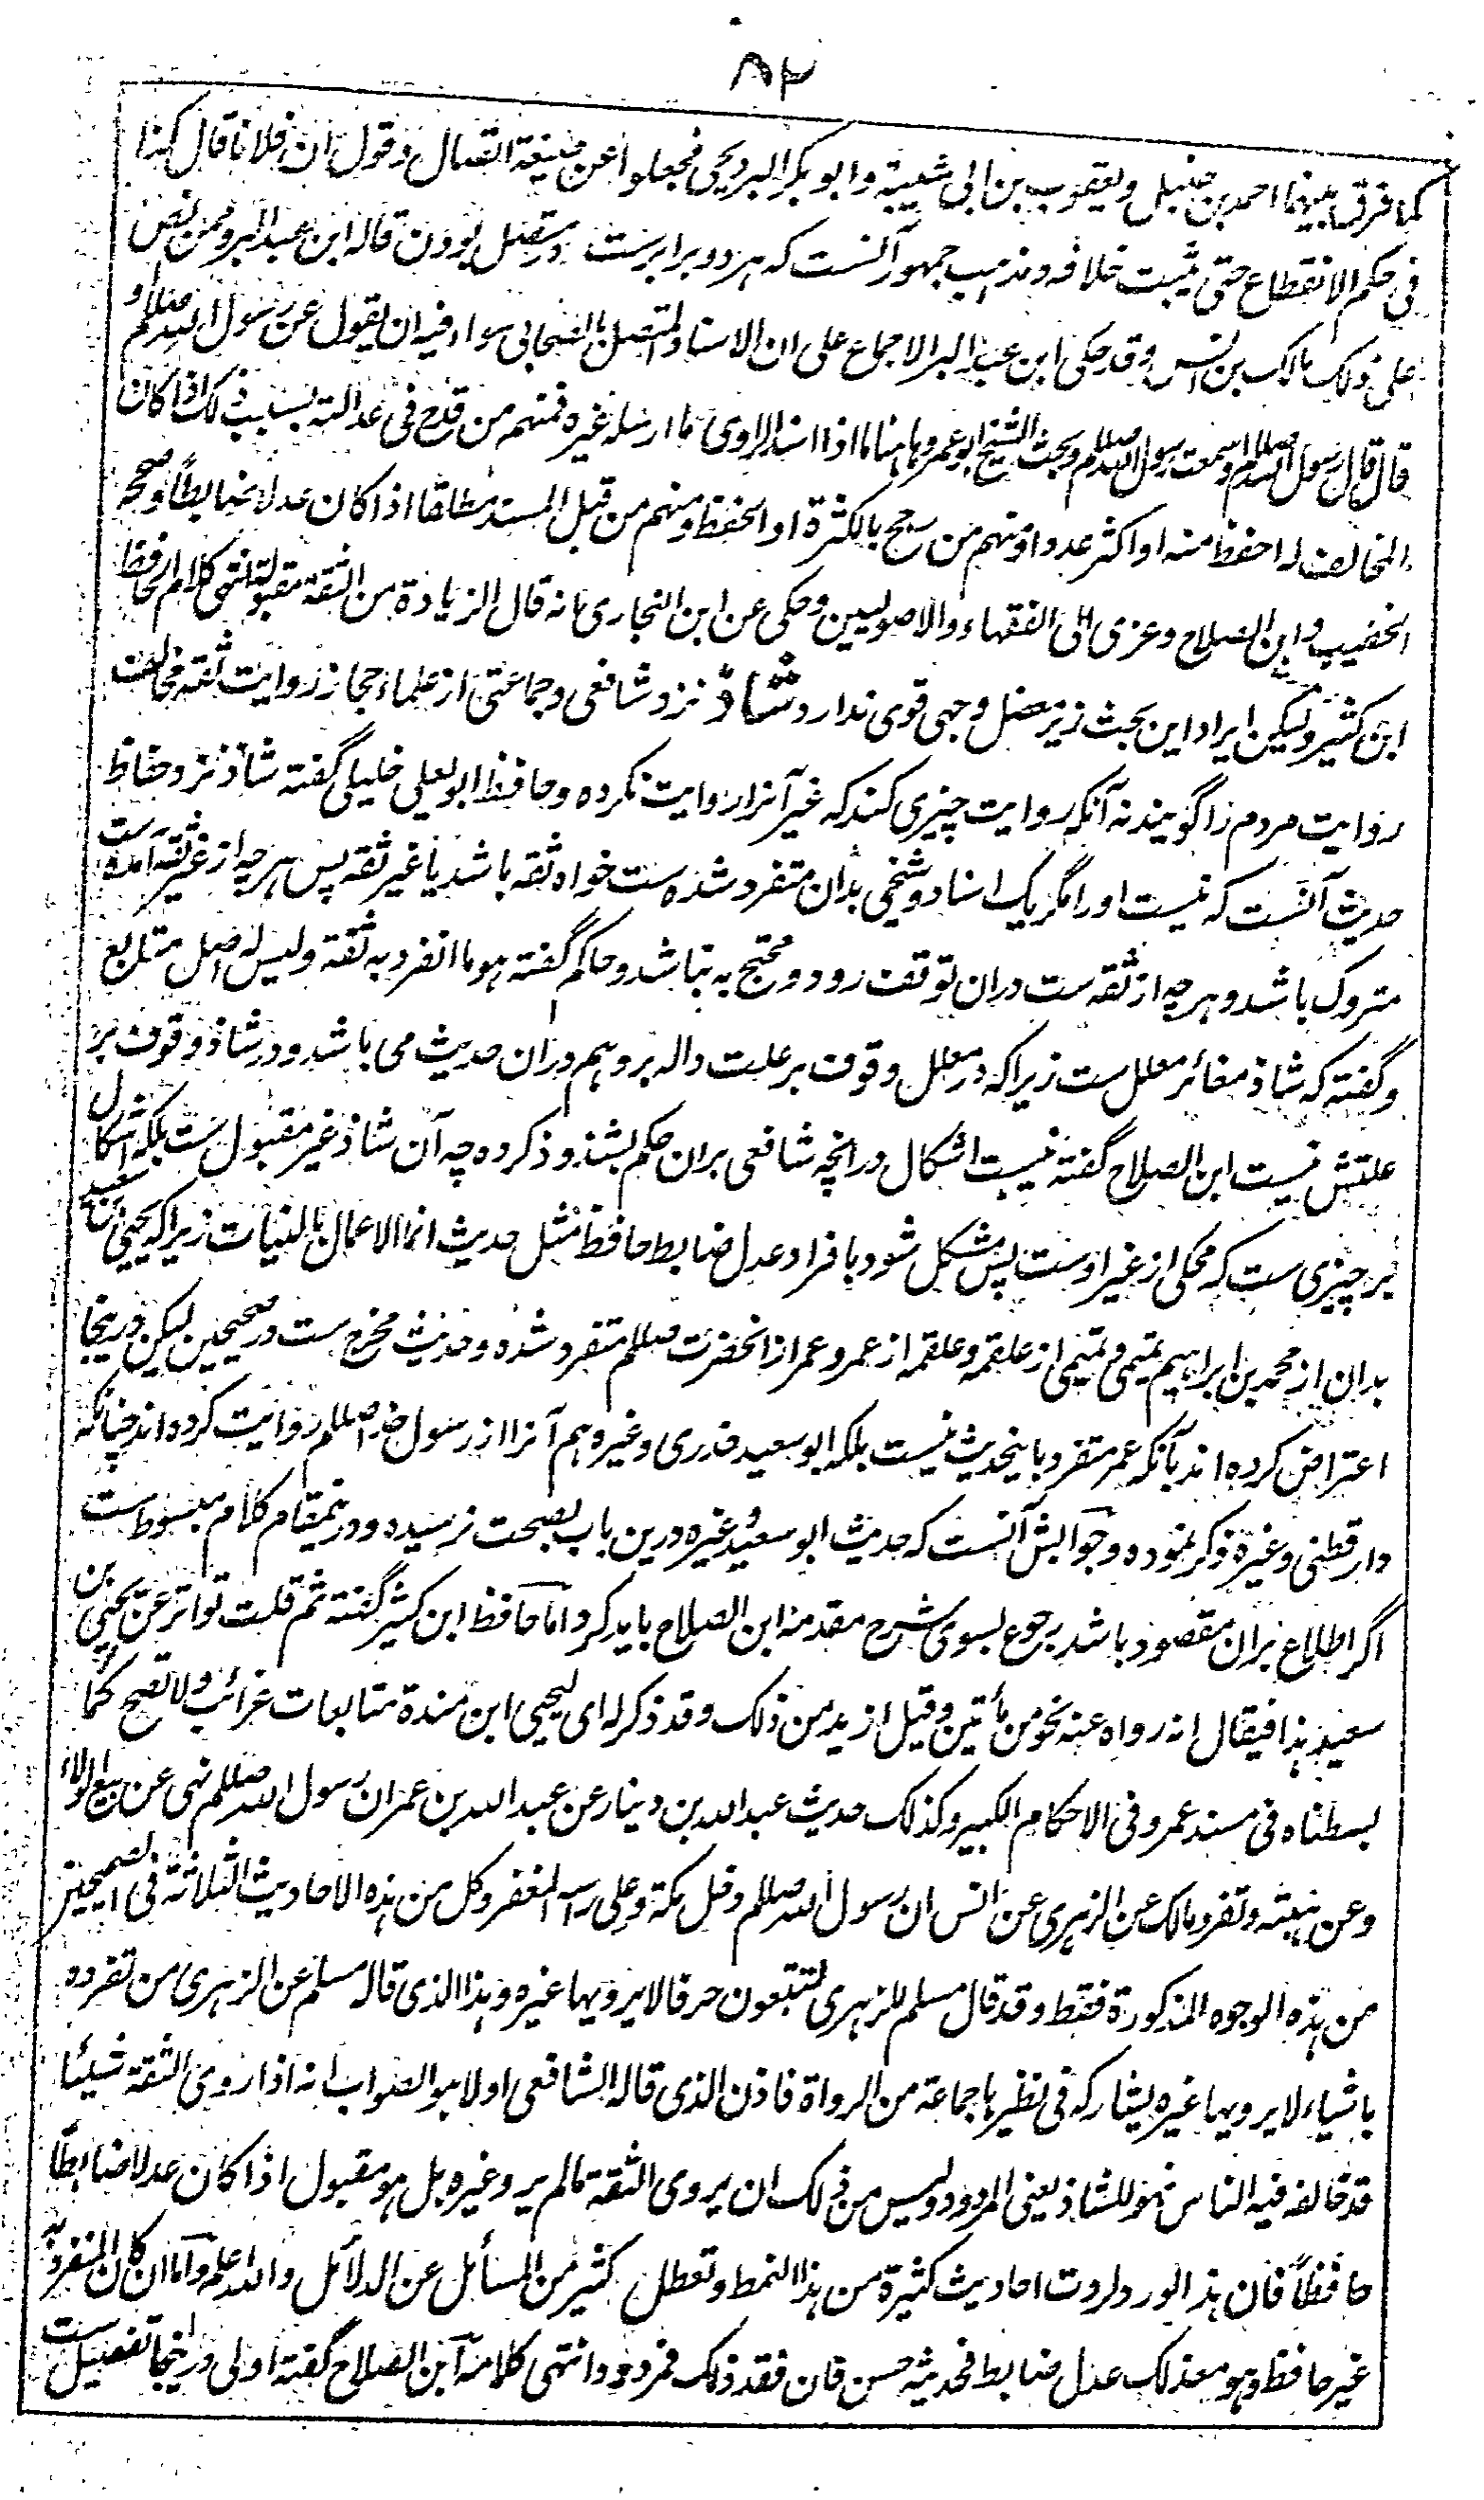 ۸۲
کما فرق بینهما احمد بن حنبل و یعقوب بن ابی شیبة و ابو بکر البردیجی فجعلوا عن صیغة اتصال و قول ان فلانا قال کذا
فی حکم الانقطاع حتی یثبت خلافه و مذهب جمهور آنست که هر دو برابرست در متصل بودن قاله ابن عبد البر و ممن نص
علی ذلک مالک بن انس و قد حکی ابن عبد البر الاجماع علی ان الاسناد المتصل بالصحابی سواء فیه ان یقول عن رسول الله صللم و
قال قال رسول الله صللم و سمعت رسول الله صللم و بحث الشیخ ابو عمرو ههنا اما اذا اسند الراوی ما ارسله غیره فمنهم من قدح فی عدالته بسبب ذلک اذا کان
المخالف له احفظ منه او اکثر عددا و منهم من رجح بالکثرة او الحفظ و منهم من قبل المسند مطلقا اذا کان عدلا ضابطاً و صححه
الخطیب و ابن الصلاح و عزی الی الفقهاء و الاصولیین و حکی عن ابن البخاری انه قال الزیادة من الثقة مقبولة انتهی کلام الحافظ
ابن کثیر و لیکن ایراد این بحث زیر معضل وجهی قوی ندارد شاذ نزد شافعی و جماعتی از علماء حجاز روایت ثقه مخالف
روایت مردم را گویند نه آنکه روایت چیزی کند که غیر آنرا روایت نکرده و حافظ ابو یعلی خلیلی گفته شاذ نزد حفاظ
حدیث آنست که نیست او را مگر یک اسناد و شخصی بدان متفرد شده ست خواه ثقه باشد یا غیر ثقه پس هر چه از غیر ثقه آمده ست
متروک باشد و هر چه از ثقه ست دران توقف رود و محتج به نباشد و حاکم گفته هو ما انفرد به ثقة و لیس له اصل متابع
و گفته که شاذ مغائر معلل ست زیرا که در معلل وقوف بر علت داله بر وهم دران حدیث می باشد و در شاذ وقوف بر
علتش نیست ابن الصلاح گفته نیست اشکال در انچه شافعی بران حکم بشذوذ کرده چه آن شاذ غیر مقبول ست بلکه اشکال
بر چیزی ست که محکی از غیر اوست پس مشکل شود بافراد عدل ضابط حافظ مثل حدیث انما الاعمال بالنیات زیرا که یحیی بن سعید
بدان از محمد بن ابراهیم تیمی و تیمی از علقمه و علقمه از عمر و عمر از انحضرت صللم متفرد شده و حدیث مخرج ست در صحیحین لیکن درینجا
اعتراض کرده اند بآنکه عمر متفرد باینحدیث نیست بلکه ابو سعید خدری و غیره هم آنرا از رسول خدا صللم روایت کرده اند چنانکه
دارقطنی و غیره ذکر نموده و جوابش آنست که حدیث ابو سعید و غیره درین باب بصحت نرسیده و درینمقام کلام مبسوط ست
اگر اطلاع بران مقصود باشد رجوع بسوی شرح مقدمه ابن الصلاح باید کرد اما حافظ ابن کثیر گفته ثم قلت تواتر عن یحیی بن
سعید هذا فیقال انه رواه عنه نحو من مأتین و قیل ازید من ذلک و قد ذکر له ای لیحیی ابن مندة متابعات غرائب و لا تصح کما
بسطناه فی مسند عمر و فی الاحکام الکبیر و کذلک حدیث عبد الله بن دینار عن عبد الله بن عمر ان رسول الله صللم نهی عن بیع الولاء
و عن هبته و تفرد مالک عن الزهری عن انس ان رسول الله صللم دخل مکة و علی راسه المغفر و کل من هذه الاحادیث الثلاثة فی الصحیحین
من هذه الوجوه المذکورة فقط و قد قال مسلم للزهری تسعون حرفا لا یرویها غیره و هذا الذی قاله مسلم عن الزهری من تفرده
باشیاء لا یرویها غیره یشارکه فی نظیرها جماعة من الرواة فاذن الذی قاله الشافعی اولا هو الصواب انه اذا روی الثقة شیئا
قد خالفه فیه الناس فهو الشاذ یعنی المردود و لیس من ذلک ان یروی الثقة ما لم یرو غیره بل هو مقبول اذا کان عدلا ضابطاً
حافظاً فان هذا لو رد لردت احادیث کثیرة من هذا النمط و تعطل کثیر من المسائل عن الدلائل و الله اعلم و اما ان کان المنفرد به
غیر حافظ و هو معذلک عدل ضابط فحدیثه حسن فان فقد ذلک فمردود انتهی کلامه ابن الصلاح گفته اولی در اینجا تفصیل ست